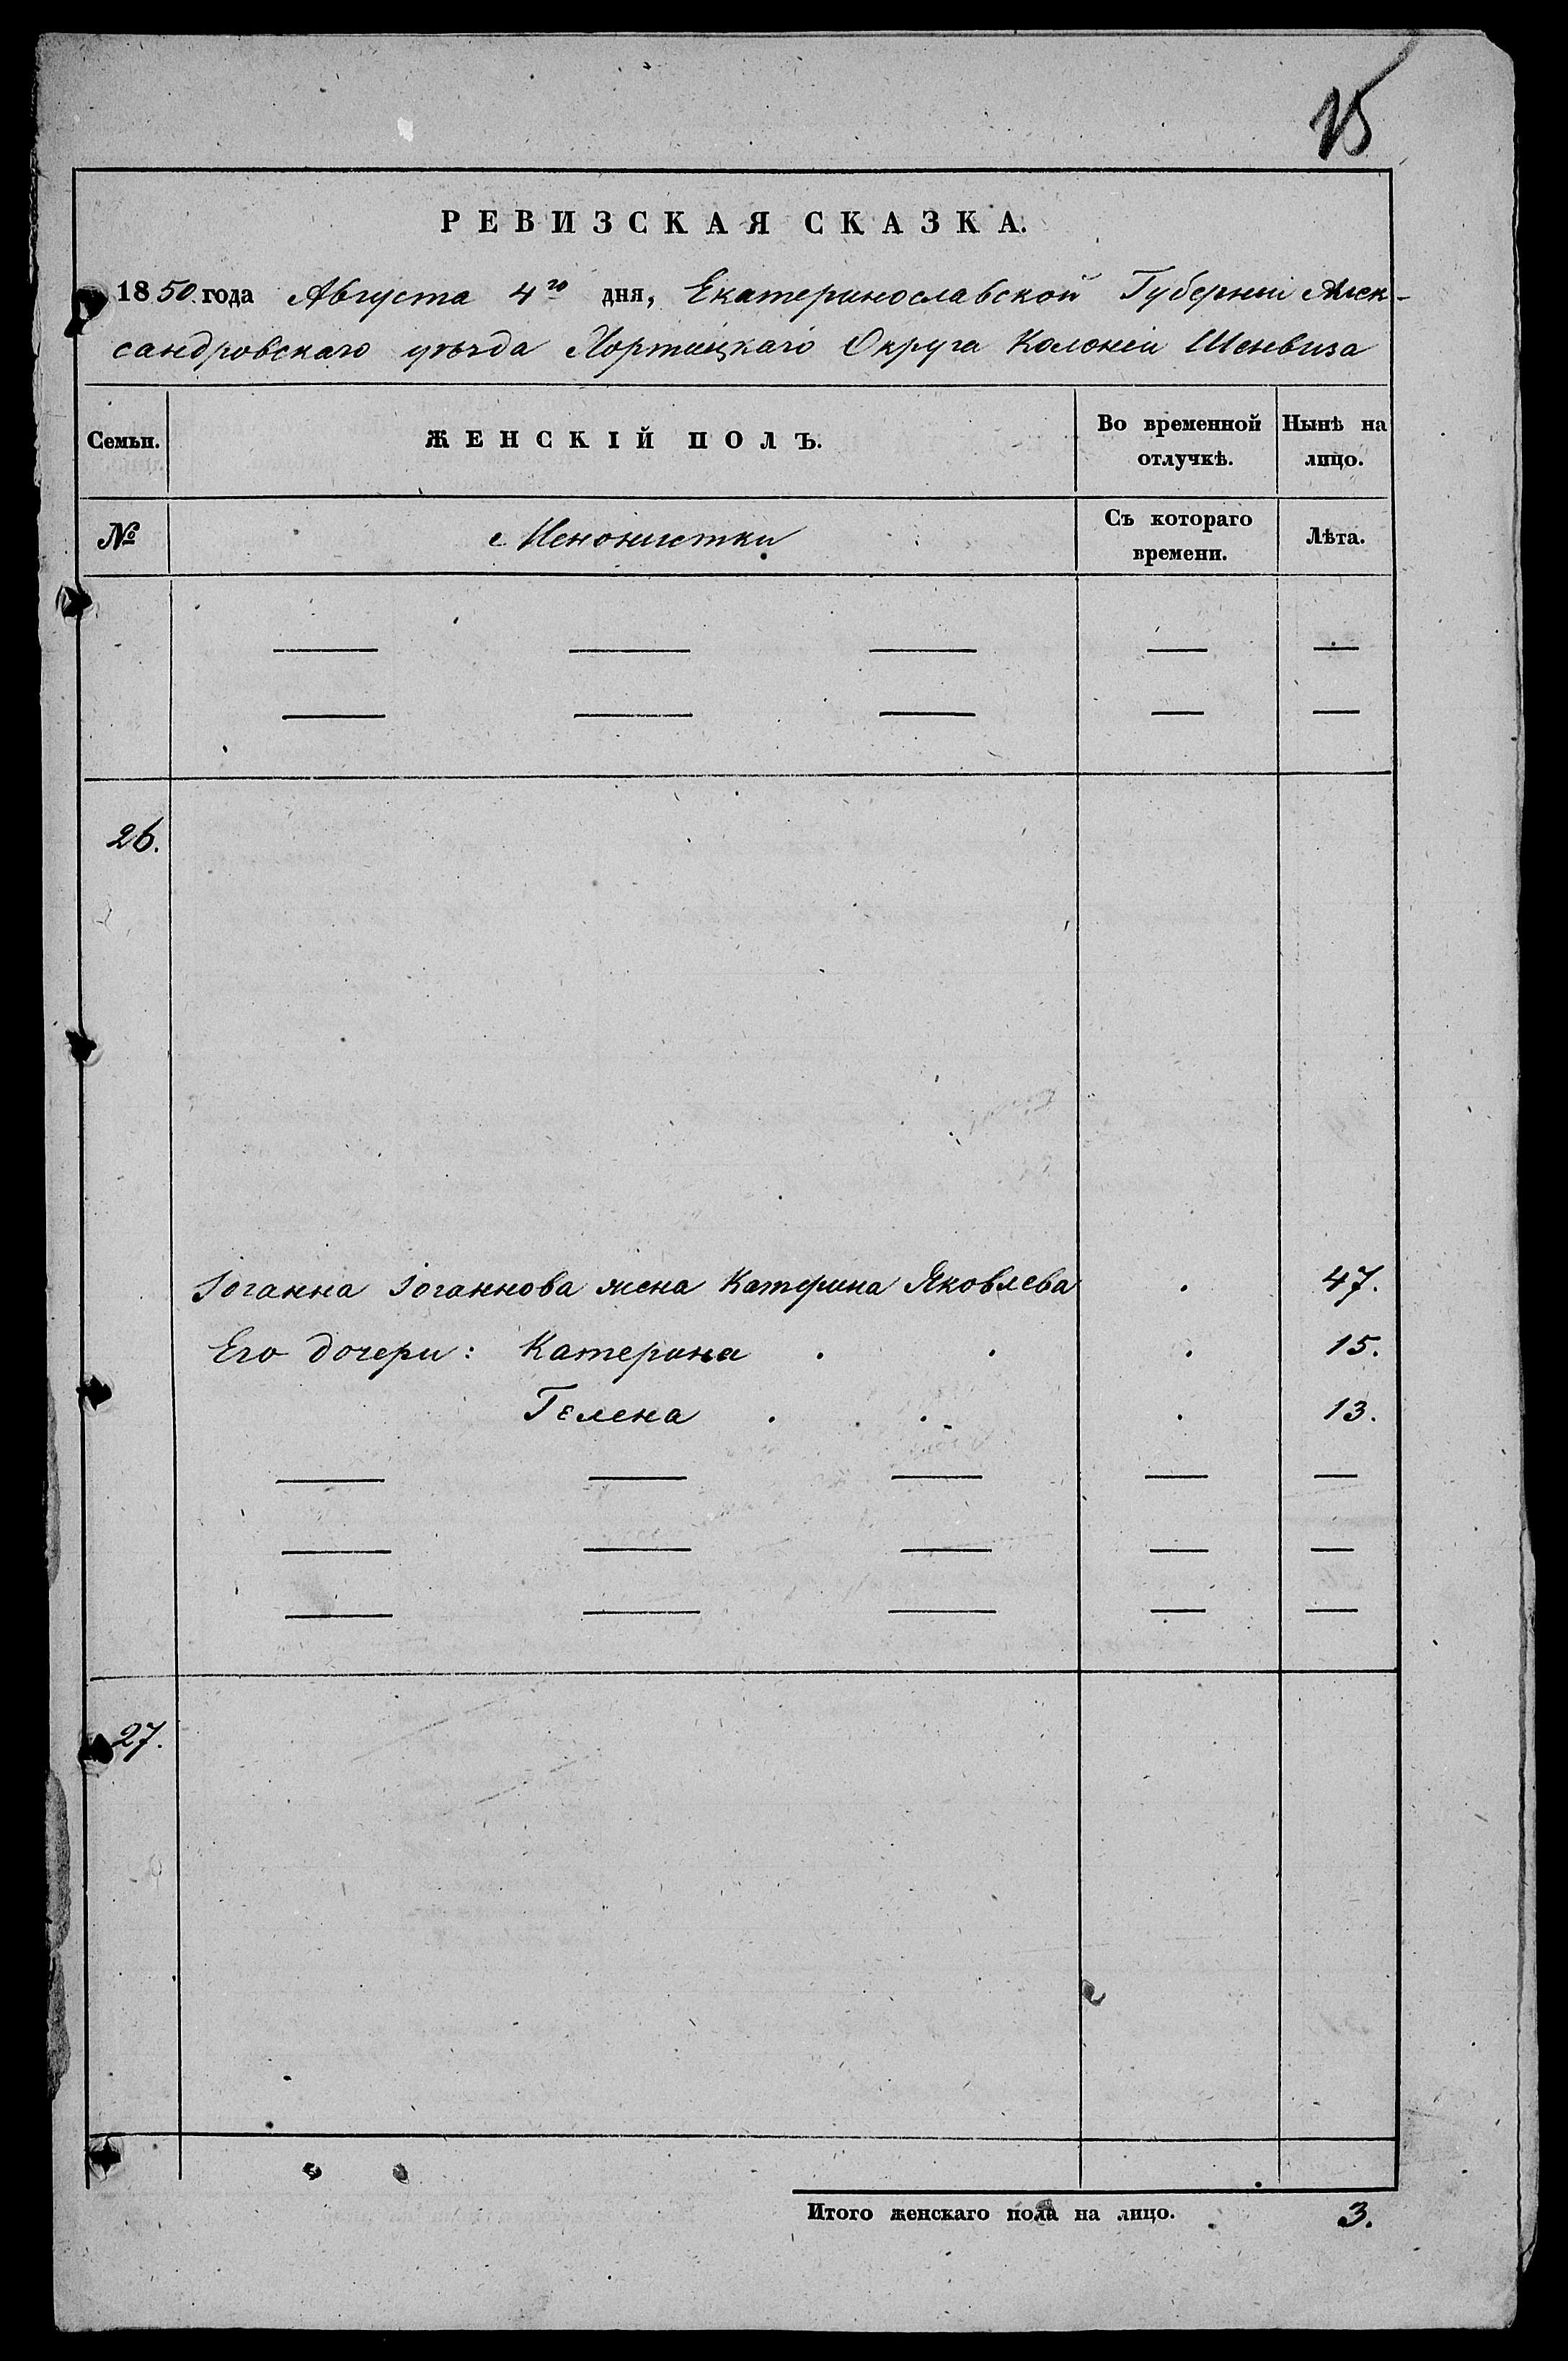 15
РЕВИЗСКАЯ СКАЗКА.
1850 года Августа 4го дня, Екатеринославской Губерніи Алек-
сандровскаго уѣзда Хортицкаго Округа Колоніи Шенвиза
Семьи. ЖЕНСКІЙ ПОЛЪ. Во временной отлучкѣ. Нынѣ на лицо.
№ Менонистки Съ котораго времени. Лѣта.
— — — — —
— — — — —
26.
Іоганна Іоганнова жена Катерина Яковлева . 47.
Его дочери: Катерина . . . 15.
Гелена . . . 13.
— — — — —
— — — — —
— — — — —
27.
Итого женскаго пола на лицо. 3.